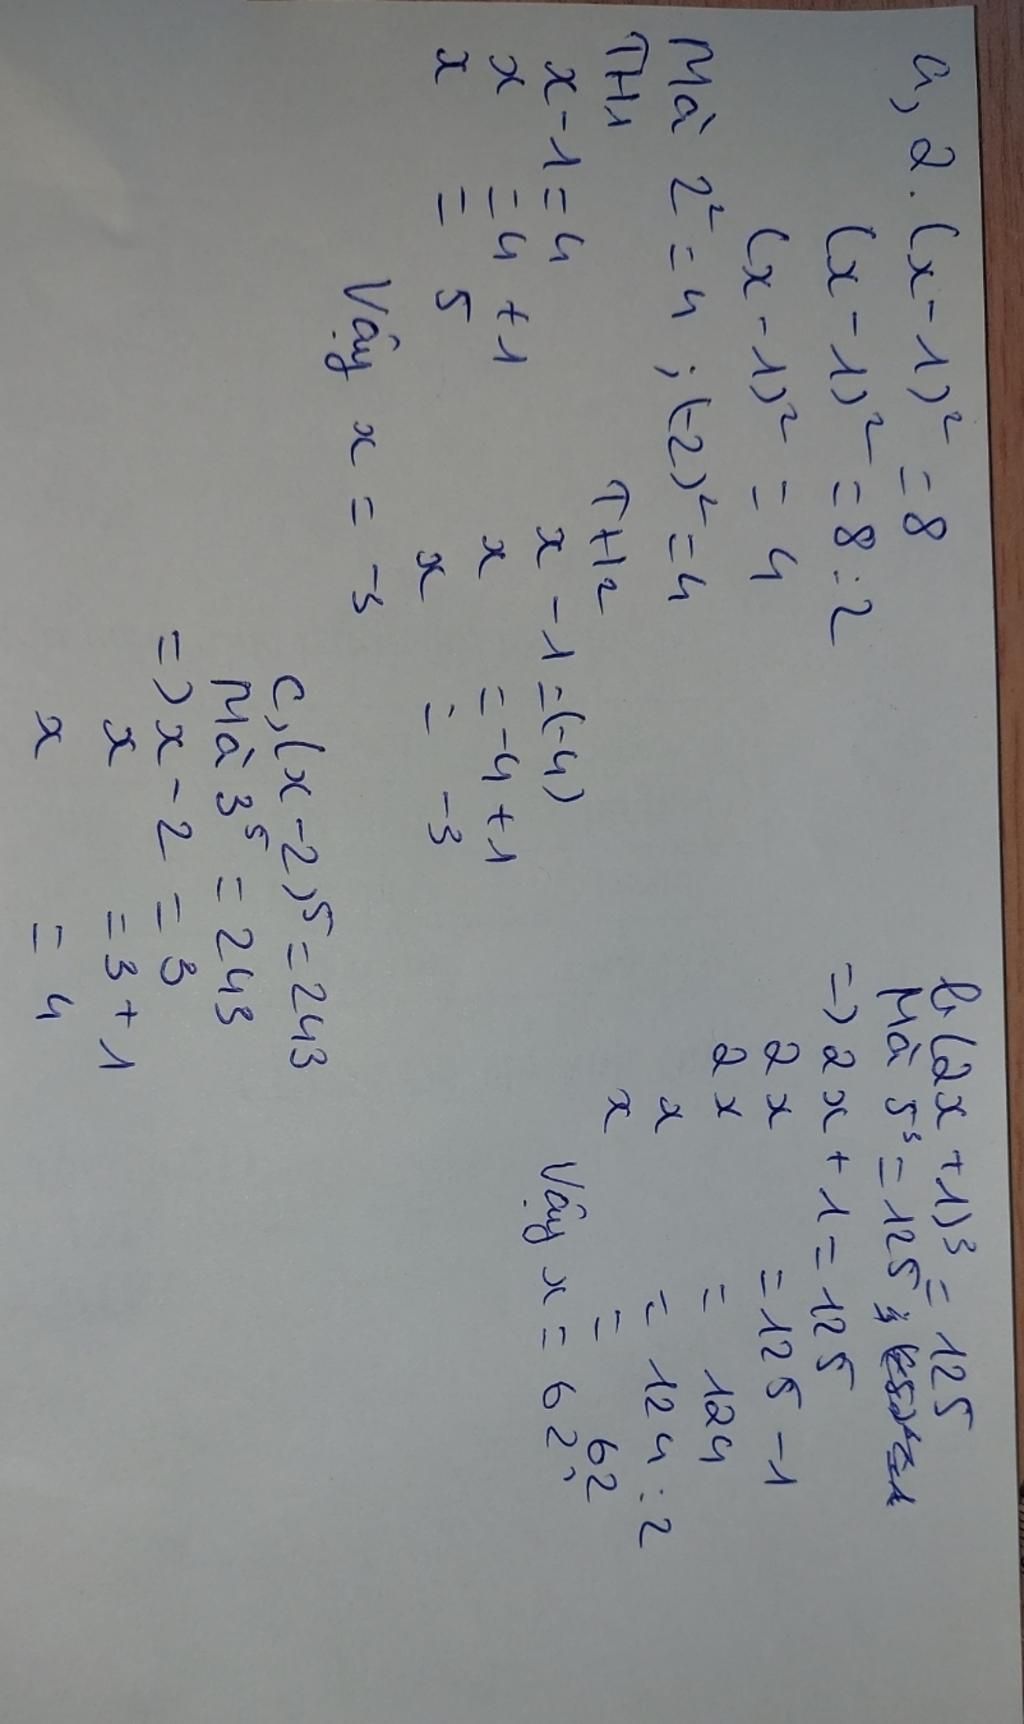 a, 2.(x-1)² = 8
(x-1)² = 8:2
(x-1)² = 4
Mà 2² = 4 ; (-2)² = 4
TH1
x-1 = 4
x = 4+1
x = 5
TH2
x-1 = (-4)
x = -4+1
x = -3
Vậy x = -3
b, (2x+1)³ = 125
Mà 5³ = 125
=> 2x+1 = 125
2x = 125-1
2x = 124
x = 124:2
x = 62
Vậy x = 62,
c, (x-2)⁵ = 243
Mà 3⁵ = 243
=> x-2 = 3
x = 3+1
x = 4